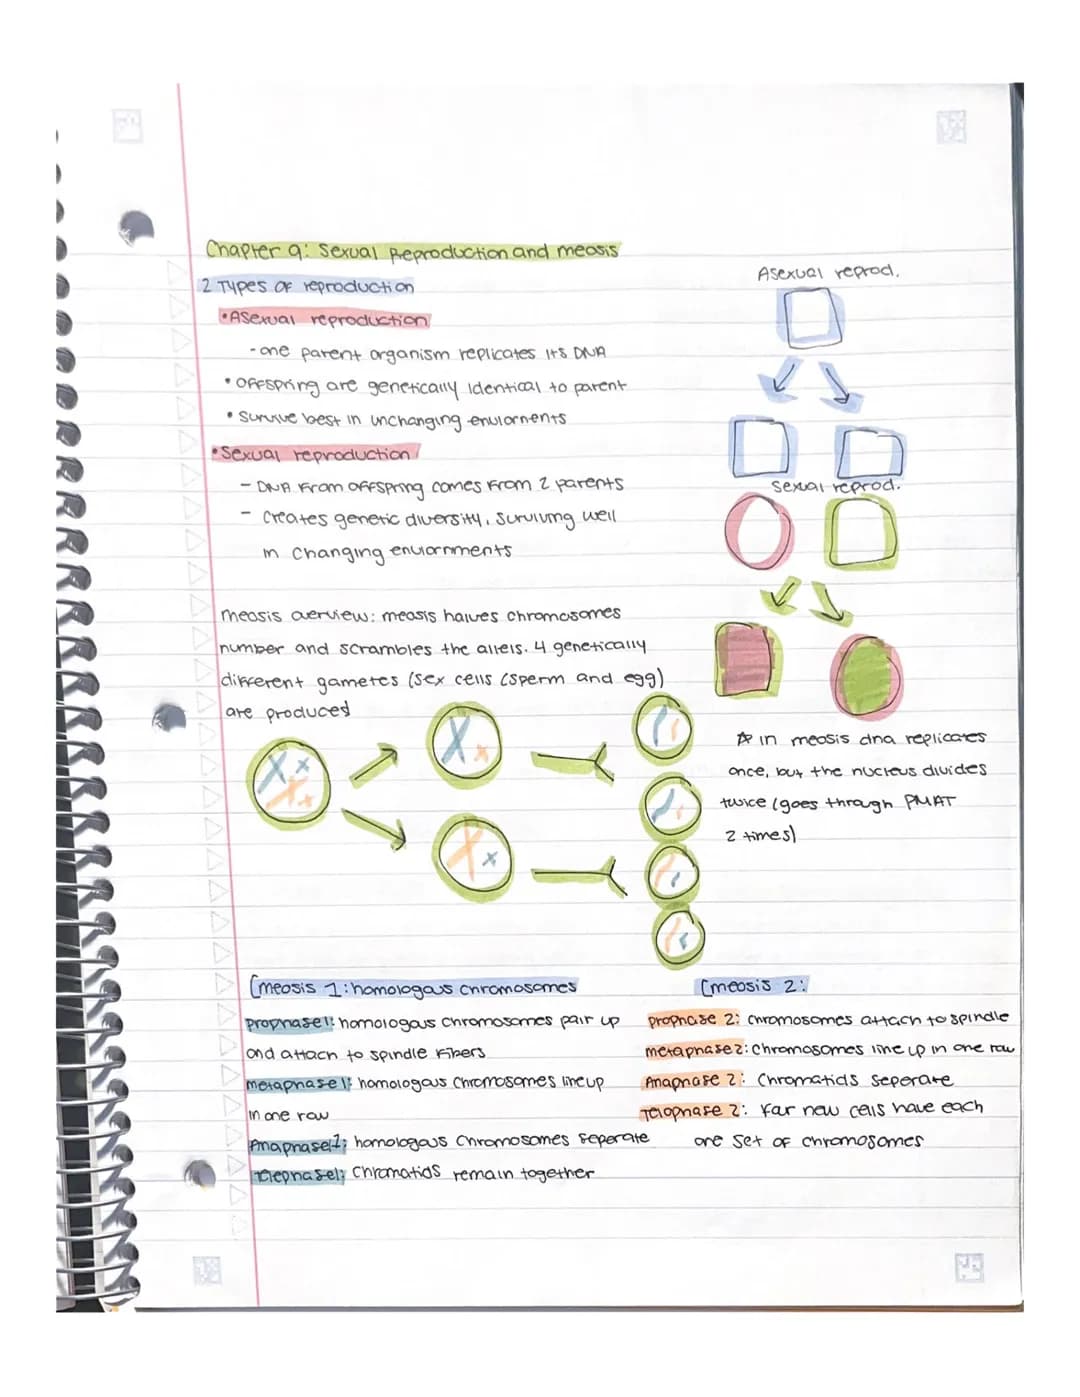 Chapter 9: Sexual Reproduction and meosis
2 Types of reproduction
•Asexual reproduction
-one parent organism replicates its DNA
•offspring are genetically identical to parent
•Survive best in unchanging enviornents
•Sexual reproduction
- DNA from offspring comes from 2 parents
- Creates genetic diversity, surviving well
in changing enviornments
Asexual reprod.
Sexual reprod.
meosis overview: meosis halves chromosomes
number and scrambles the allels. 4 genetically
different gametes (sex cells (sperm and egg)
are produced
☆ in meosis dna replicates
once, but the nucleus divides
twice (goes through PMAT
2 times)
(meosis 1: homologous chromosomes
prophase1: homologous chromosomes pair up
and attach to spindle fibers
metaphase1: homologous chromosomes line up
in one row
Anaphase1: homologous chromosomes seperate
Tlephase1: Chromatids remain together
(meosis 2:
prophase 2: chromosomes attach to spindle
metaphase2: Chromosomes line up in one row
Anaphase 2: Chromatids seperate
Telophase 2: four new cells have each
one set of chromosomes